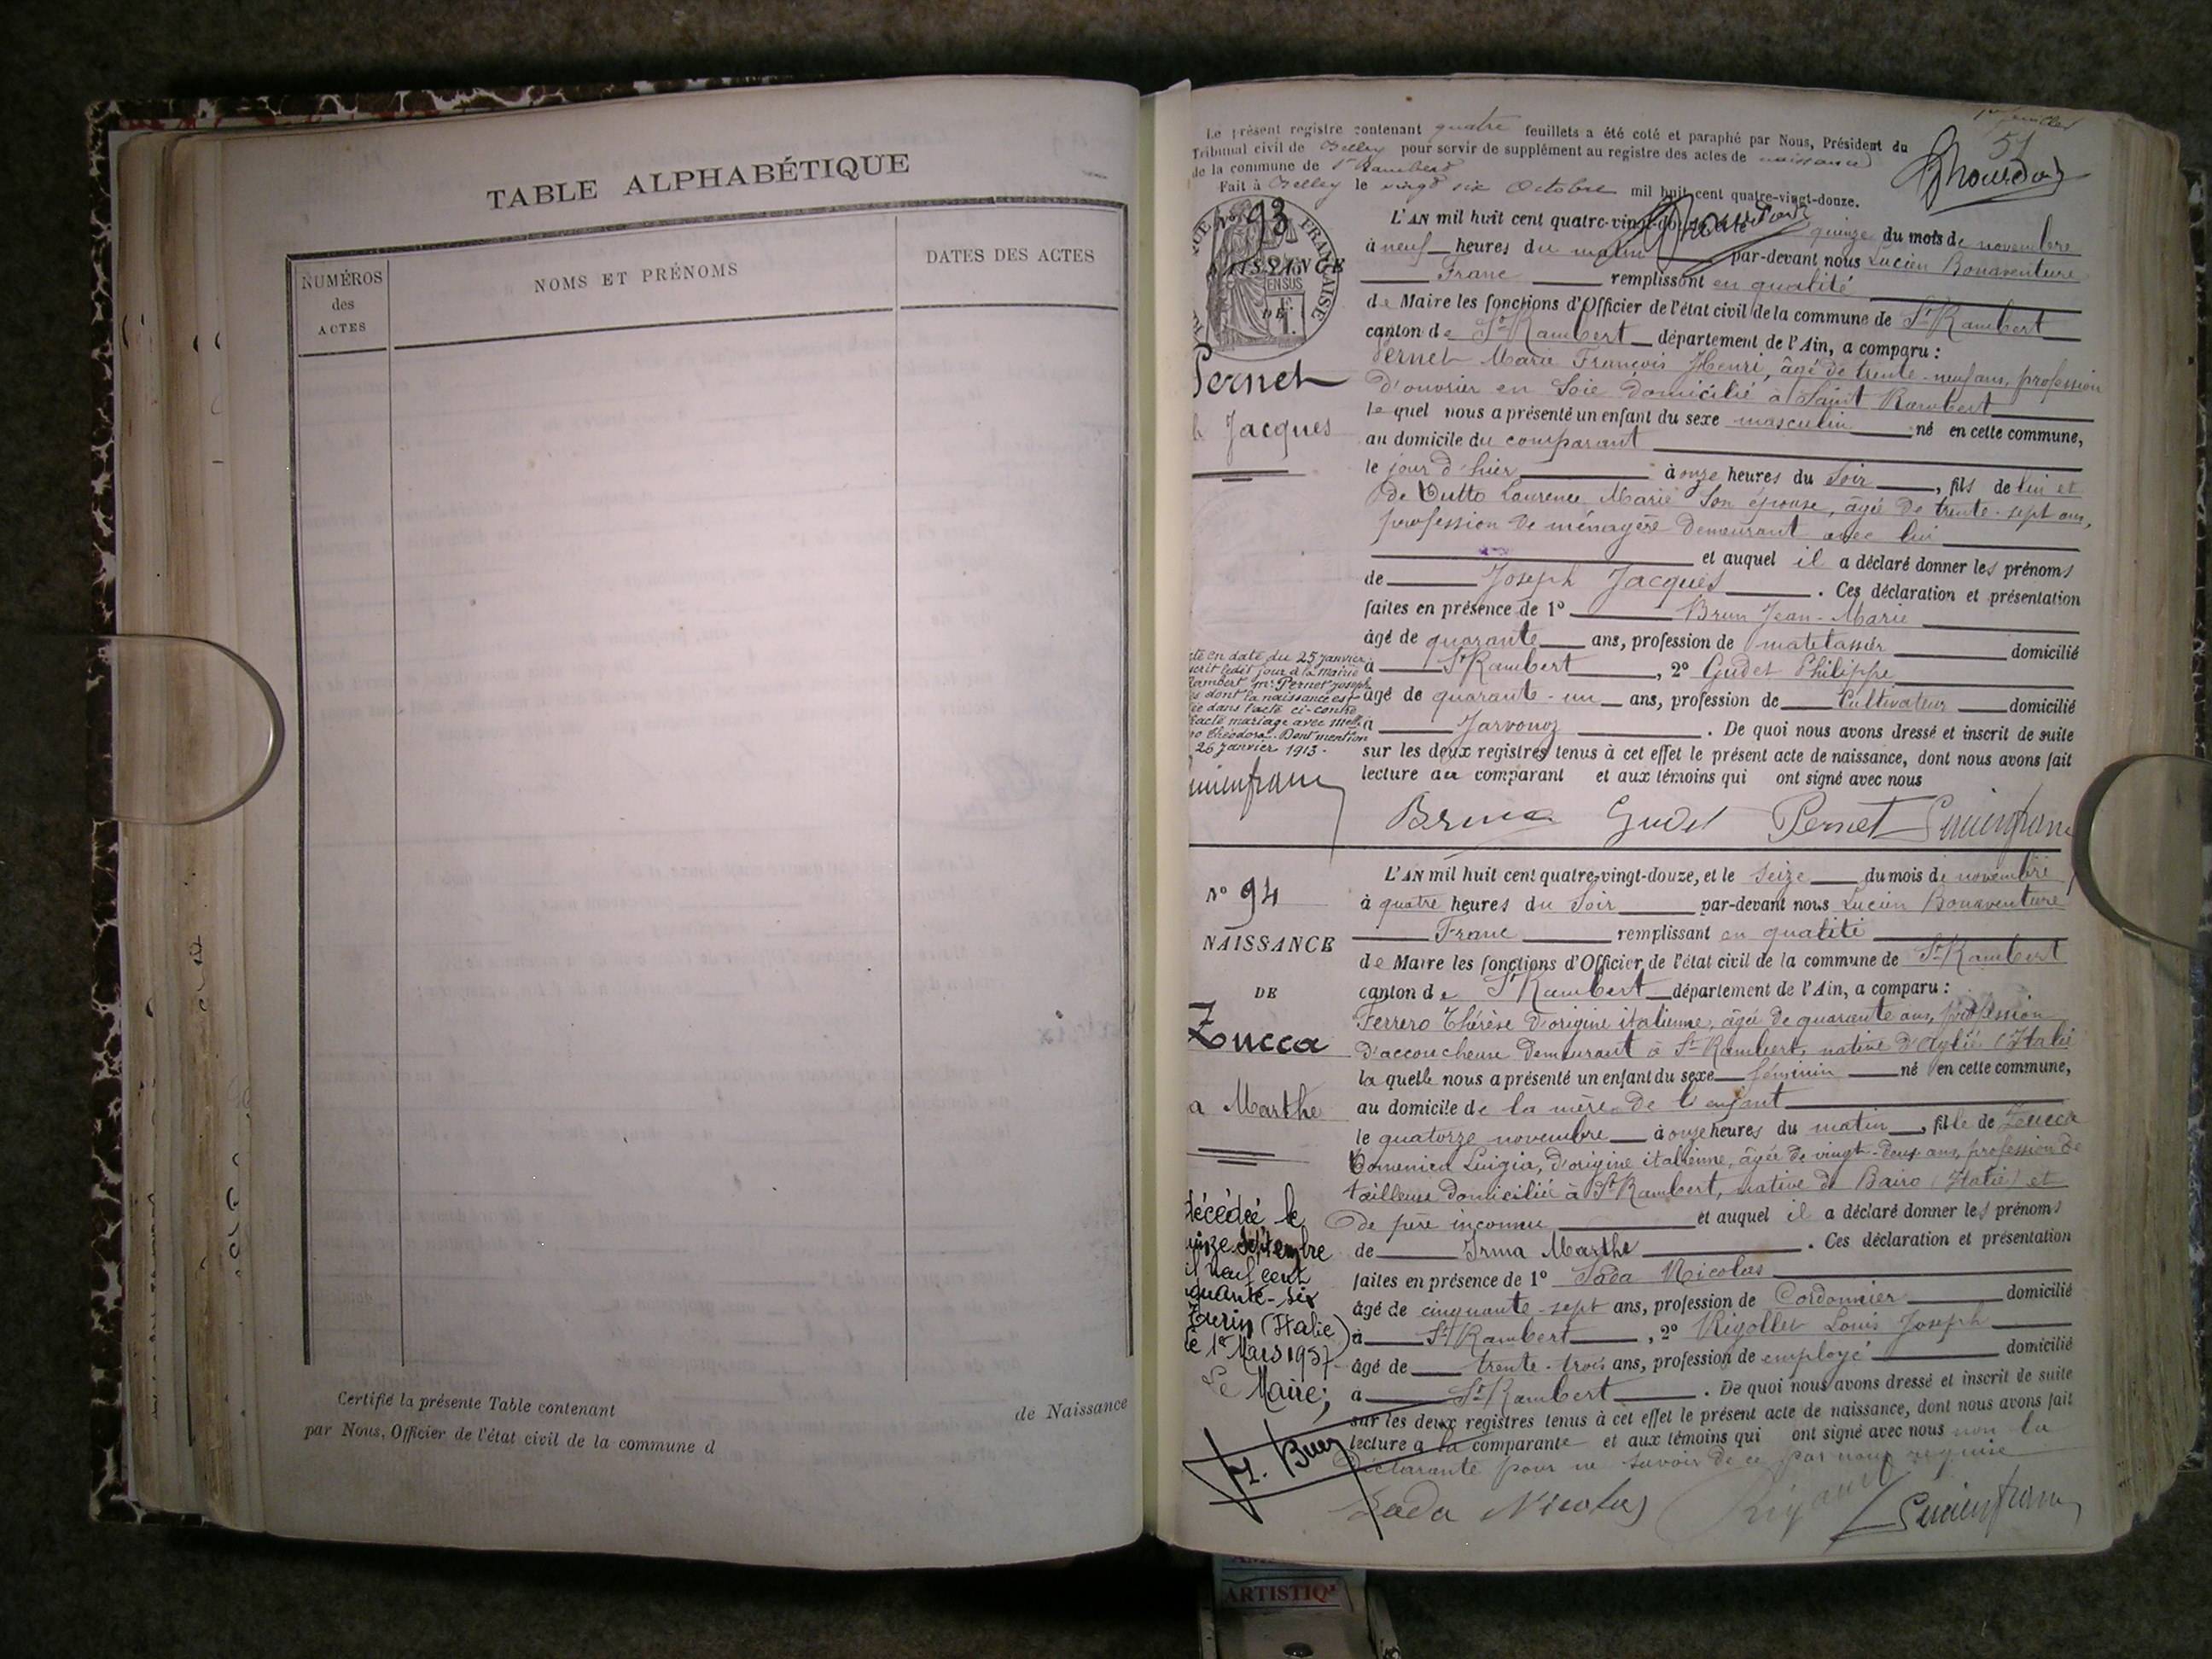 TABLE ALPHABÉTIQUE
NUMÉROS
des
ACTES
NOMS ET PRÉNOMS
DATES DES ACTES
Certifié la présente Table contenant
de Naissance
par Nous, Officier de l'état civil de la commune d
51
Le présent registre contenant quatre feuillets a été coté et paraphé par Nous, Président du
Tribunal civil de Belley pour servir de supplément au registre des actes de naissance
de la commune de St Rambert
Fait à Belley le vingt six Octobre mil huit cent quatre-vingt-douze.
No 93
NAISSANCE
DE
Pernet
Jacques
L'AN mil huit cent quatre-vingt-douze, et le quinze du mois de novembre
à neuf heures du matin par-devant nous Lucien Bonaventure
Franc remplissant en qualité
de Maire les fonctions d'Officier de l'état civil de la commune de St Rambert
canton de St Rambert département de l'Ain, a comparu :
Pernet Marie François Henri, âgé de trente-neuf ans, profession
d'ouvrier en soie domicilié à Saint Rambert
le quel nous a présenté un enfant du sexe masculin né en cette commune,
au domicile du comparant
le jour d'hier à onze heures du soir, fils de lui et
de Laurence Marie son épouse, âgée de trente-sept ans,
profession de ménagère demeurant avec lui
et auquel il a déclaré donner les prénoms
de Joseph Jacques. Ces déclaration et présentation
faites en présence de 1º Brun Jean-Marie
âgé de quarante ans, profession de matelassier domicilié
à St Rambert, 2º Gudet Philippe
âgé de quarante-un ans, profession de Cultivateur domicilié
à Javornoz. De quoi nous avons dressé et inscrit de suite
sur les deux registres tenus à cet effet le présent acte de naissance, dont nous avons fait
lecture au comparant et aux témoins qui ont signé avec nous
en date du 25 janvier
ledit jour à la Mairie
Rambert Mr Pernet Joseph
dont la naissance est
dans l'acte ci-contre
mariage avec Melle
Théodora. Dont mention
26 janvier 1913.
Lucienfranc
Brun Gudet Pernet Lucienfranc
No 94
NAISSANCE
DE
Zucca
Marthe
L'AN mil huit cent quatre-vingt-douze, et le seize du mois de novembre
à quatre heures du soir par-devant nous Lucien Bonaventure
Franc remplissant en qualité
de Maire les fonctions d'Officier de l'état civil de la commune de St Rambert
canton de St Rambert département de l'Ain, a comparu :
Ferrero Thérèse d'origine italienne, âgée de quarante ans, profession
d'accoucheuse demeurant à St Rambert, native d'Aglié (Italie
la quelle nous a présenté un enfant du sexe féminin né en cette commune,
au domicile de la mère de l'enfant
le quatorze novembre à onze heures du matin, fille de Zucca
Domenica Luigia, d'origine italienne, âgée de vingt-deux ans, profession de
tailleuse domiciliée à St Rambert, native de Bairo (Italie) et
de père inconnu et auquel il a déclaré donner les prénoms
de Irma Marthe. Ces déclaration et présentation
faites en présence de 1º Sada Nicolas
âgé de cinquante-sept ans, profession de Cordonnier domicilié
à St Rambert, 2º Rigollet Louis Joseph
âgé de trente-trois ans, profession de employé domicilié
à St Rambert. De quoi nous avons dressé et inscrit de suite
sur les deux registres tenus à cet effet le présent acte de naissance, dont nous avons fait
lecture à la comparante et aux témoins qui ont signé avec nous non la
déclarante pour ne savoir de ce par nous requise
décédée le
septembre
neuf cent
six
Turin (Italie)
le 1er Mars 1957
Le Maire;
Sada Nicolas Lucienfranc
ARTISTIQ